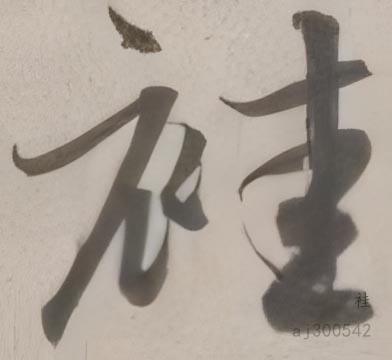 袿
袿
aj300542